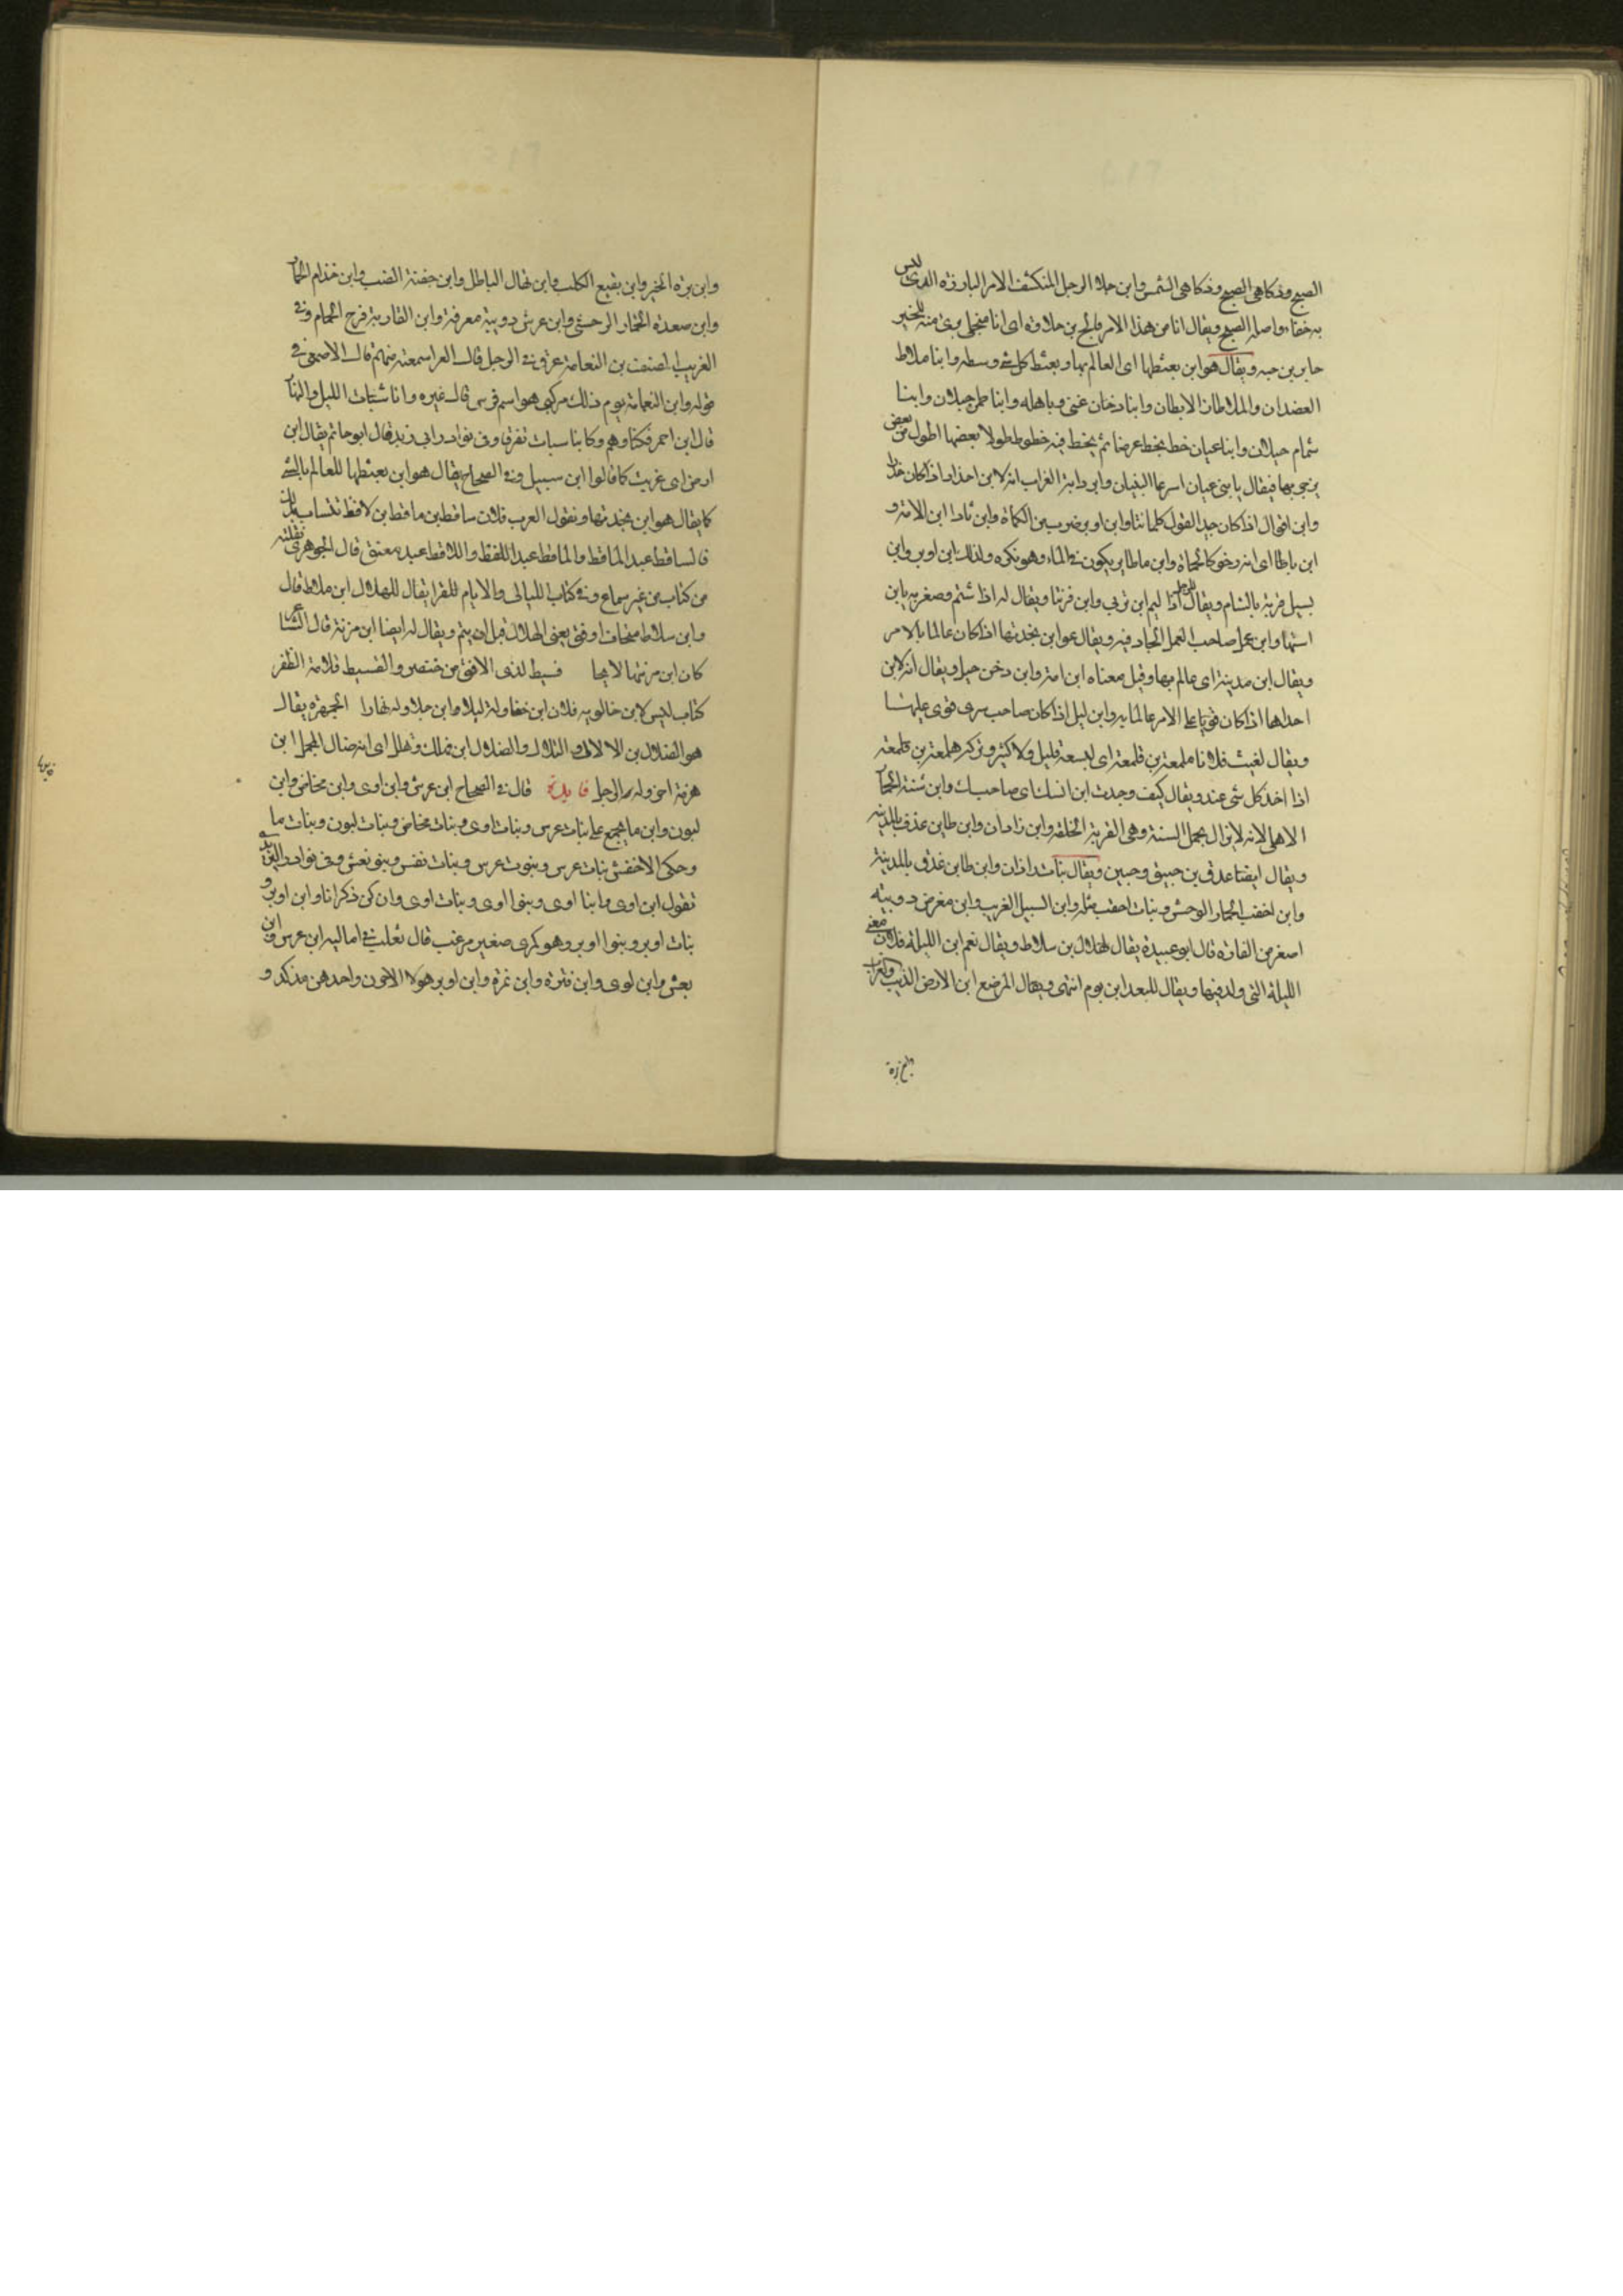 الصبح وذكا هي الصبح وذكا هي الشمس وابن جلا الرجل المنكشف الامر البارزه الذي ليس
به خفاء واصله الصبح ويقال انا من هذا الامر فالج بن خلاوة اي انا متخلي برئ منه للخبز
جابر بن حبه ويقال هو ابن بعثطها اي العالم بها وبعثط كل شي وسطه وابنا ملاط
العضدان والملاطان الابطان وابنا دخان غنى وباهله وابنا طمر جبلان وابنا
شمام جبلان وابنا عيان خط يخط عرضا ثم يخط فيه خطوط طولا بعضها اطول من بعض
يزجر بها فيقال يا بنى عيان اسرعا البنيان وابن دايرة الغراب انه لابن احذار اذا كان حذرا
وابن اقوال اذا كان جيد القول كلمانتا وابن اوبر ضرب من الكماة وابن ثادا ابن الامة و
ابن باطا اي انه رخو كالحماة وابن ماطاير يكون في الماء وهو نكره ولذلك ابن اوبر وابن
بسيل قرية بالشام ويقال للرجل اذا ليم ابن ترنى وابن فرتنا ويقال له اذا شتم وصغر به يابن
استها وابن عمل صاحب العمل الجاد فيه ويقال هو ابن بجدتها اذا كان عالما بالامر
ويقال ابن مدينة اي عالم بها وقيل معناه ابن امة وابن دخن جبل ويقال انه لابن
احداها اذا كان قويا على الامر عالما به وابن ليل اذا كان صاحب سرى قوى عليها
ويقال لغيث فلانا هلمعة بن قلمعة اي ليسعة قليل ولا كثير وتركه هلمعة بن قلمعة
اذا اخذ كل شي عنده ويقال كيف وجدت ابن انسك اي صاحبك وابن شنة الحمار
الاهلي لانه لا يزال يحمل السنة وهي القربة الخلقة وابن زادان وابن طاب عذق بالمدينة
ويقال ايضا عذق بن حبيق وحبين ويقال بنات اذان وابن طاب عذق بالمدينة
وابن احقب الحمار الوحش وبنات احقب مثله وابن السبيل الغريب وابن مقرض دويبه
اصغر من الفاره قال ابو عبيدة يقال لهلال بن سلاط ويقال نعم ابن الليلة فلان معنى
الليلة التى ولد فيها ويقال للبعد ابن يوم انتهى ويقال المرضع ابن الارض الذيب والغراب
وابن بره الخبز وابن بقيع الكلب وابن نهال الباطل وابن جفنة العنب وابن خذام الحمار
وابن صعدة الحمار الوحشي وابن عرس دويبة معرفة وابن القارية فرخ الحمام وفي
الغريب المصنف بن النعامة عرق في الرجل قال الفرا سمعته منهم قال الاصمعي في
قوله وابن النعامة يوم ذلك مركبي هو اسم فرس قال غيره وانا شبات الليل والنهار
قال ابن احمر فكنا وهم وكابنا سبات تفرقا وفي نوادر ابي زيد قال ابو حاتم يقال ابن
ارض اي غريب كما قالوا ابن سبيل وفي الصحاح يقال هو ابن بعثطها للعالم بالشي
كما يقال هو ابن بجدتها وتقول العرب فلان ساقط بن ماقط بن لاقط تتساب بذلك
فالساقط عبد الماقط والماقط عبد اللاقط واللاقط عبد معتق قال الجوهري نقلته
من كتاب من غير سماع وفي كتاب الليالي والايام للفرا يقال للهلال ابن ملاط قال
وابن سلاط متجاف اوفق يعني الهلال قبل ان يتم ويقال له ايضا ابن مزنة قال الشاعر
كان ابن مزنتها لايحا فسيط لدى الافق من خنصر والفسيط قلامة الظفر
كتاب ليس لابن خالويه فلان ابن خفا وله ليلا وابن جلا وله نهارا الجمهرة يقال
هو الضلال بن الالال والتلال والضلال ابن فهلل وثهلل اي انه ضال المجمل ابن
هرمة اخر ولد الرجل فايدة قال في الصحاح ابن عرس وابن اوى وابن مخاض وابن
لبون وابن ما يجمع على بنات عرس وبنات اوى وبنات مخاض وبنات لبون وبنات ما
وحكى الاخفش بنات عرس وبنوت عرس وبنات نعش وبنو نعش وفي نوادر اليزيدي
تقول ابن اوى وابنا اوى وبنوا اوى وبنات اوى وان كن ذكرانا وابن اوبر و
بنات اوبر وبنوا اوبر وهو كمرى صغير مزغب قال ثعلب في اماليه ابن عرس وابن
نعش وابن اوى وابن قترة وابن تمرة وابن اوبر هولا الاخرون واحدهن مذكر و
وابن بره